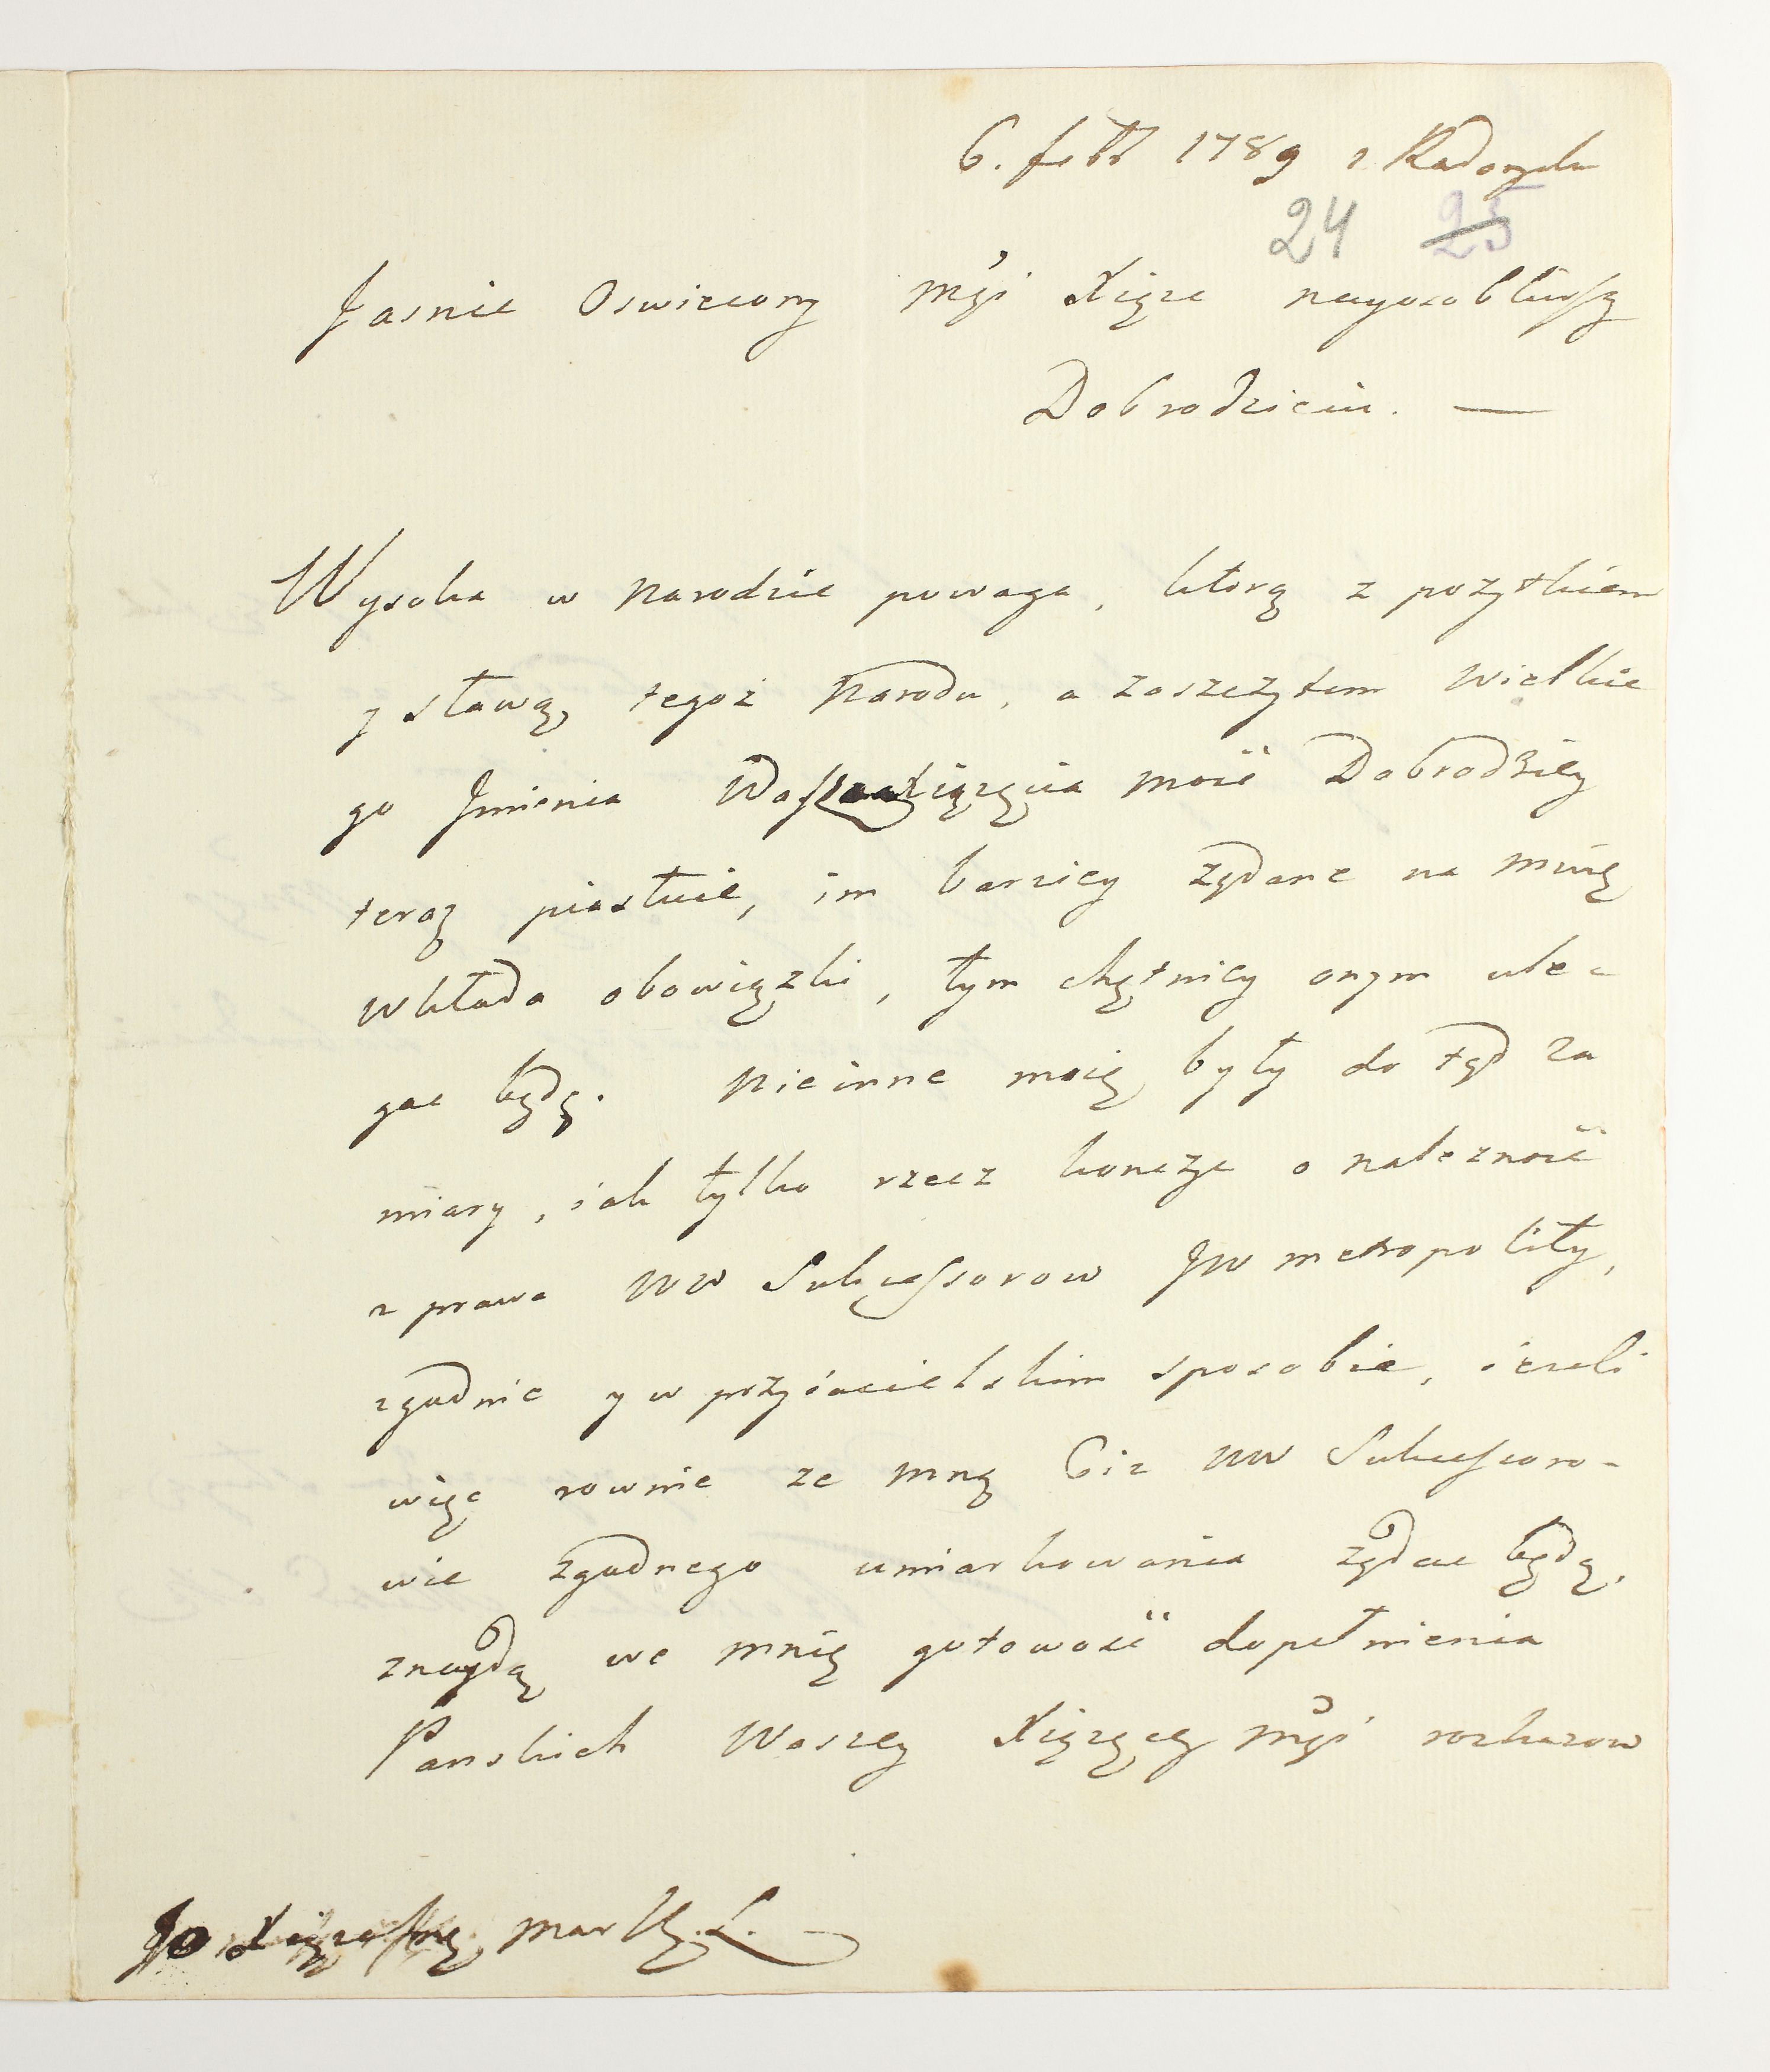 6. febr 1789 z Radoryla
24 25
Jasnie Oswiecony Mći Xiąże nayosobliwszy
Dobrodzieiu. —
Wysoka w Narodzie powaga, ktorą z pozytkiem
y sławą, tegoż Narodu, a zaszczytem Wielkie
go Jmienia Waszcia Xiążęcia Mość Dobrodziey
teraz piastuie, im barziey żądane na mnię
wkłada obowiązki, tym chętniey onym ule-
gac będę. Nie inne moię były do tąd za
miary, iak tylko rzecz koncze o należność
z prawa WW Sukcessorow JW metropolity,
zgodnie y w przyiacielskim sposobie, ieżeli
więc rownie ze mną Ciż WW Sukcessoro-
wie zgodnego umiarkowania żądać będą,
znaydą we mnię gotowość dopełnienia
Panskich Waszey Xiążęcey Mći rozkazow
JO Xiąże Jmć Mar W. L.